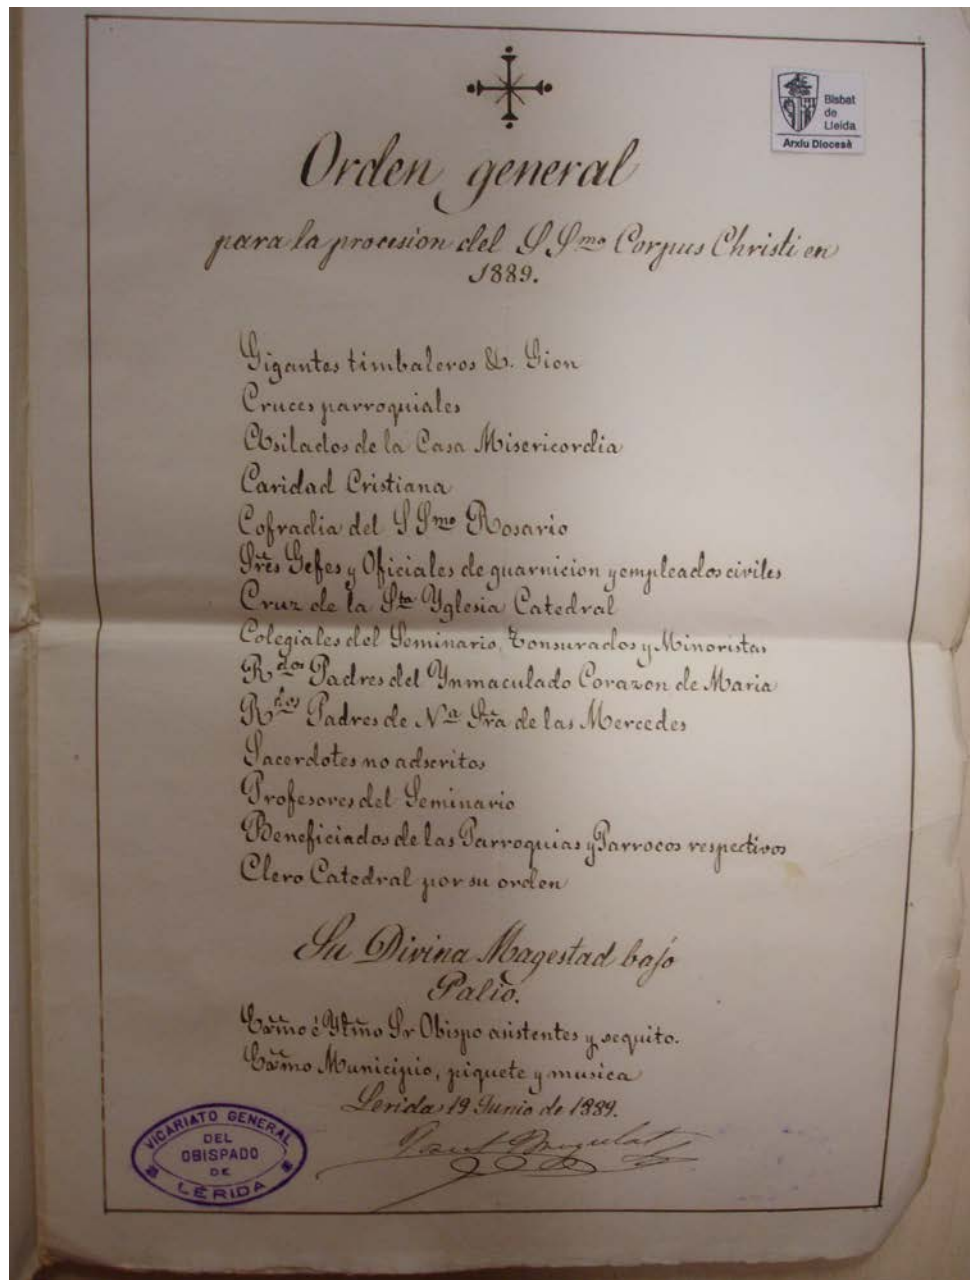 Bisbat
de
Lleida
Arxiu Diocesà
Orden general
para la procesion del SSmo Corpus Christi en
1889.
Gigantes timbaleros &. Gion
Cruces parroquiales
Asilados de la Casa Misericordia
Caridad Cristiana
Cofradia del SSmo Rosario
Sres Gefes y Oficiales de guarnicion y empleados civiles
Cruz de la Sta Yglesia Catedral
Colegiales del Seminario, Tonsurados y Minoristas
Rdos Padres del Ynmaculado Corazon de Maria
Rdos Padres de Na Sra de las Mercedes
Sacerdotes no adscritos
Profesores del Seminario
Beneficiados de las Parroquias y Parrocos respectivos
Clero Catedral por su orden
Su Divina Magestad bajo
Palio.
Exmo é Yltmo Sr Obispo asistentes y sequito.
Exmo Municipio, piquete y musica
Lerida 19 Junio de 1889.
VICARIATO GENERAL
DEL
OBISPADO
DE
LÉRIDA